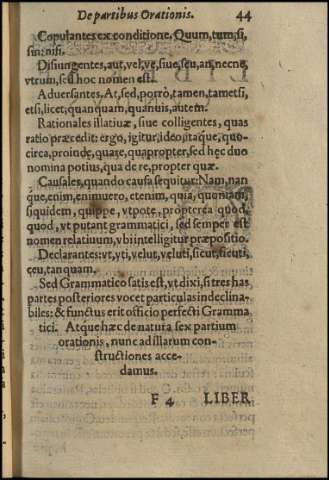 De partibus Orationis. 44
Copulantes ex conditione. Quum, tum, si,
sin: nisi.
Disiungentes, aut, vel, ve, siue, seu, an, necne,
vtrum, sed hoc nomen est.
Aduersantes. At, sed, porrò, tamen, tametsi,
etsi, licet, quanquam, quanuis, autem.
Rationales illatiuæ, siue colligentes, quas
ratio præcedit: ergo, igitur, ideo, itaque, quo-
circa, proinde, quare, quapropter, sed hęc duo
nomina potius, qua de re, propter quæ.
Causales, quando causa sequitur: Nam, nan
que, enim, enimuero, etenim, quia, quoniam,
siquidem, quippe, vtpote, propterea quòd,
quod, vt putant grammatici, sed semper est
nomen relatiuum, vbi intelligitur præpositio.
Declarantes: vt, vti, velut, veluti, sicut, sicuti,
ceu, tanquam.
Sed Grammatico satis est, vt dixi, si tres has
partes posteriores vocet particulas indeclina-
biles: & functus erit officio perfecti Gramma
tici. Atque hæc de natura sex partium
orationis, nunc ad illarum con-
structiones acce-
damus.
F 4 LIBER